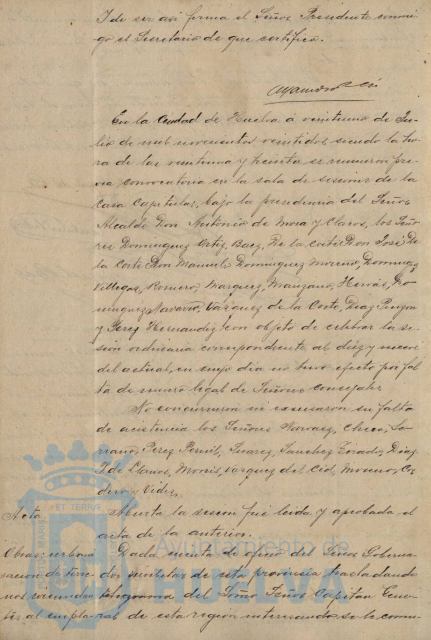 Y de ser así firma el Señor Presidente conmi-
go el Secretario de que certifico.
En la Ciudad de Huelva á veintiuno de Ju-
lio de mil novecientos veintidos siendo la ho-
ra de las veintiuna y treinta se reunieron pre-
via convocatoria en la sala de sesiones de la
Casa Capitular, bajo la presidencia del Señor
Alcalde Don Antonio de Mora y Claros, los Seño-
res Dominguez Ortiz, Baez, De la Corte Don José, De
la Corte Don Manuel, Dominguez Moreno, Dominguez
Villegas, Romero, Marquez, Manzano, Hervás, Do-
minguez Navarro, Vázquez de la Corte, Diaz
y Perez Hernandez con objeto de celebrar la se-
sión ordinaria correspondiente al diez y nueve
del actual, en cuyo día no tuvo efecto por fal-
ta de número legal de Señores Concejales.
No concurrieron ni excusaron su falta
de asistencia los Señores Narvaez, Checa, So-
riano, Perez Suarez, Sanchez Diaz
Vázquez del Cid, Moreno, Co-
y Vides.
Acta. Abierta la sesion fué leida y aprobada el
acta de la anterior.
Dada cuenta de oficio del Señor Goberna-
dor militar de esta provincia trasladando
telegrama del Señor Capitan Gene-
ral de esta región interesando se le comu-
Ayuntamiento de
HUELVA